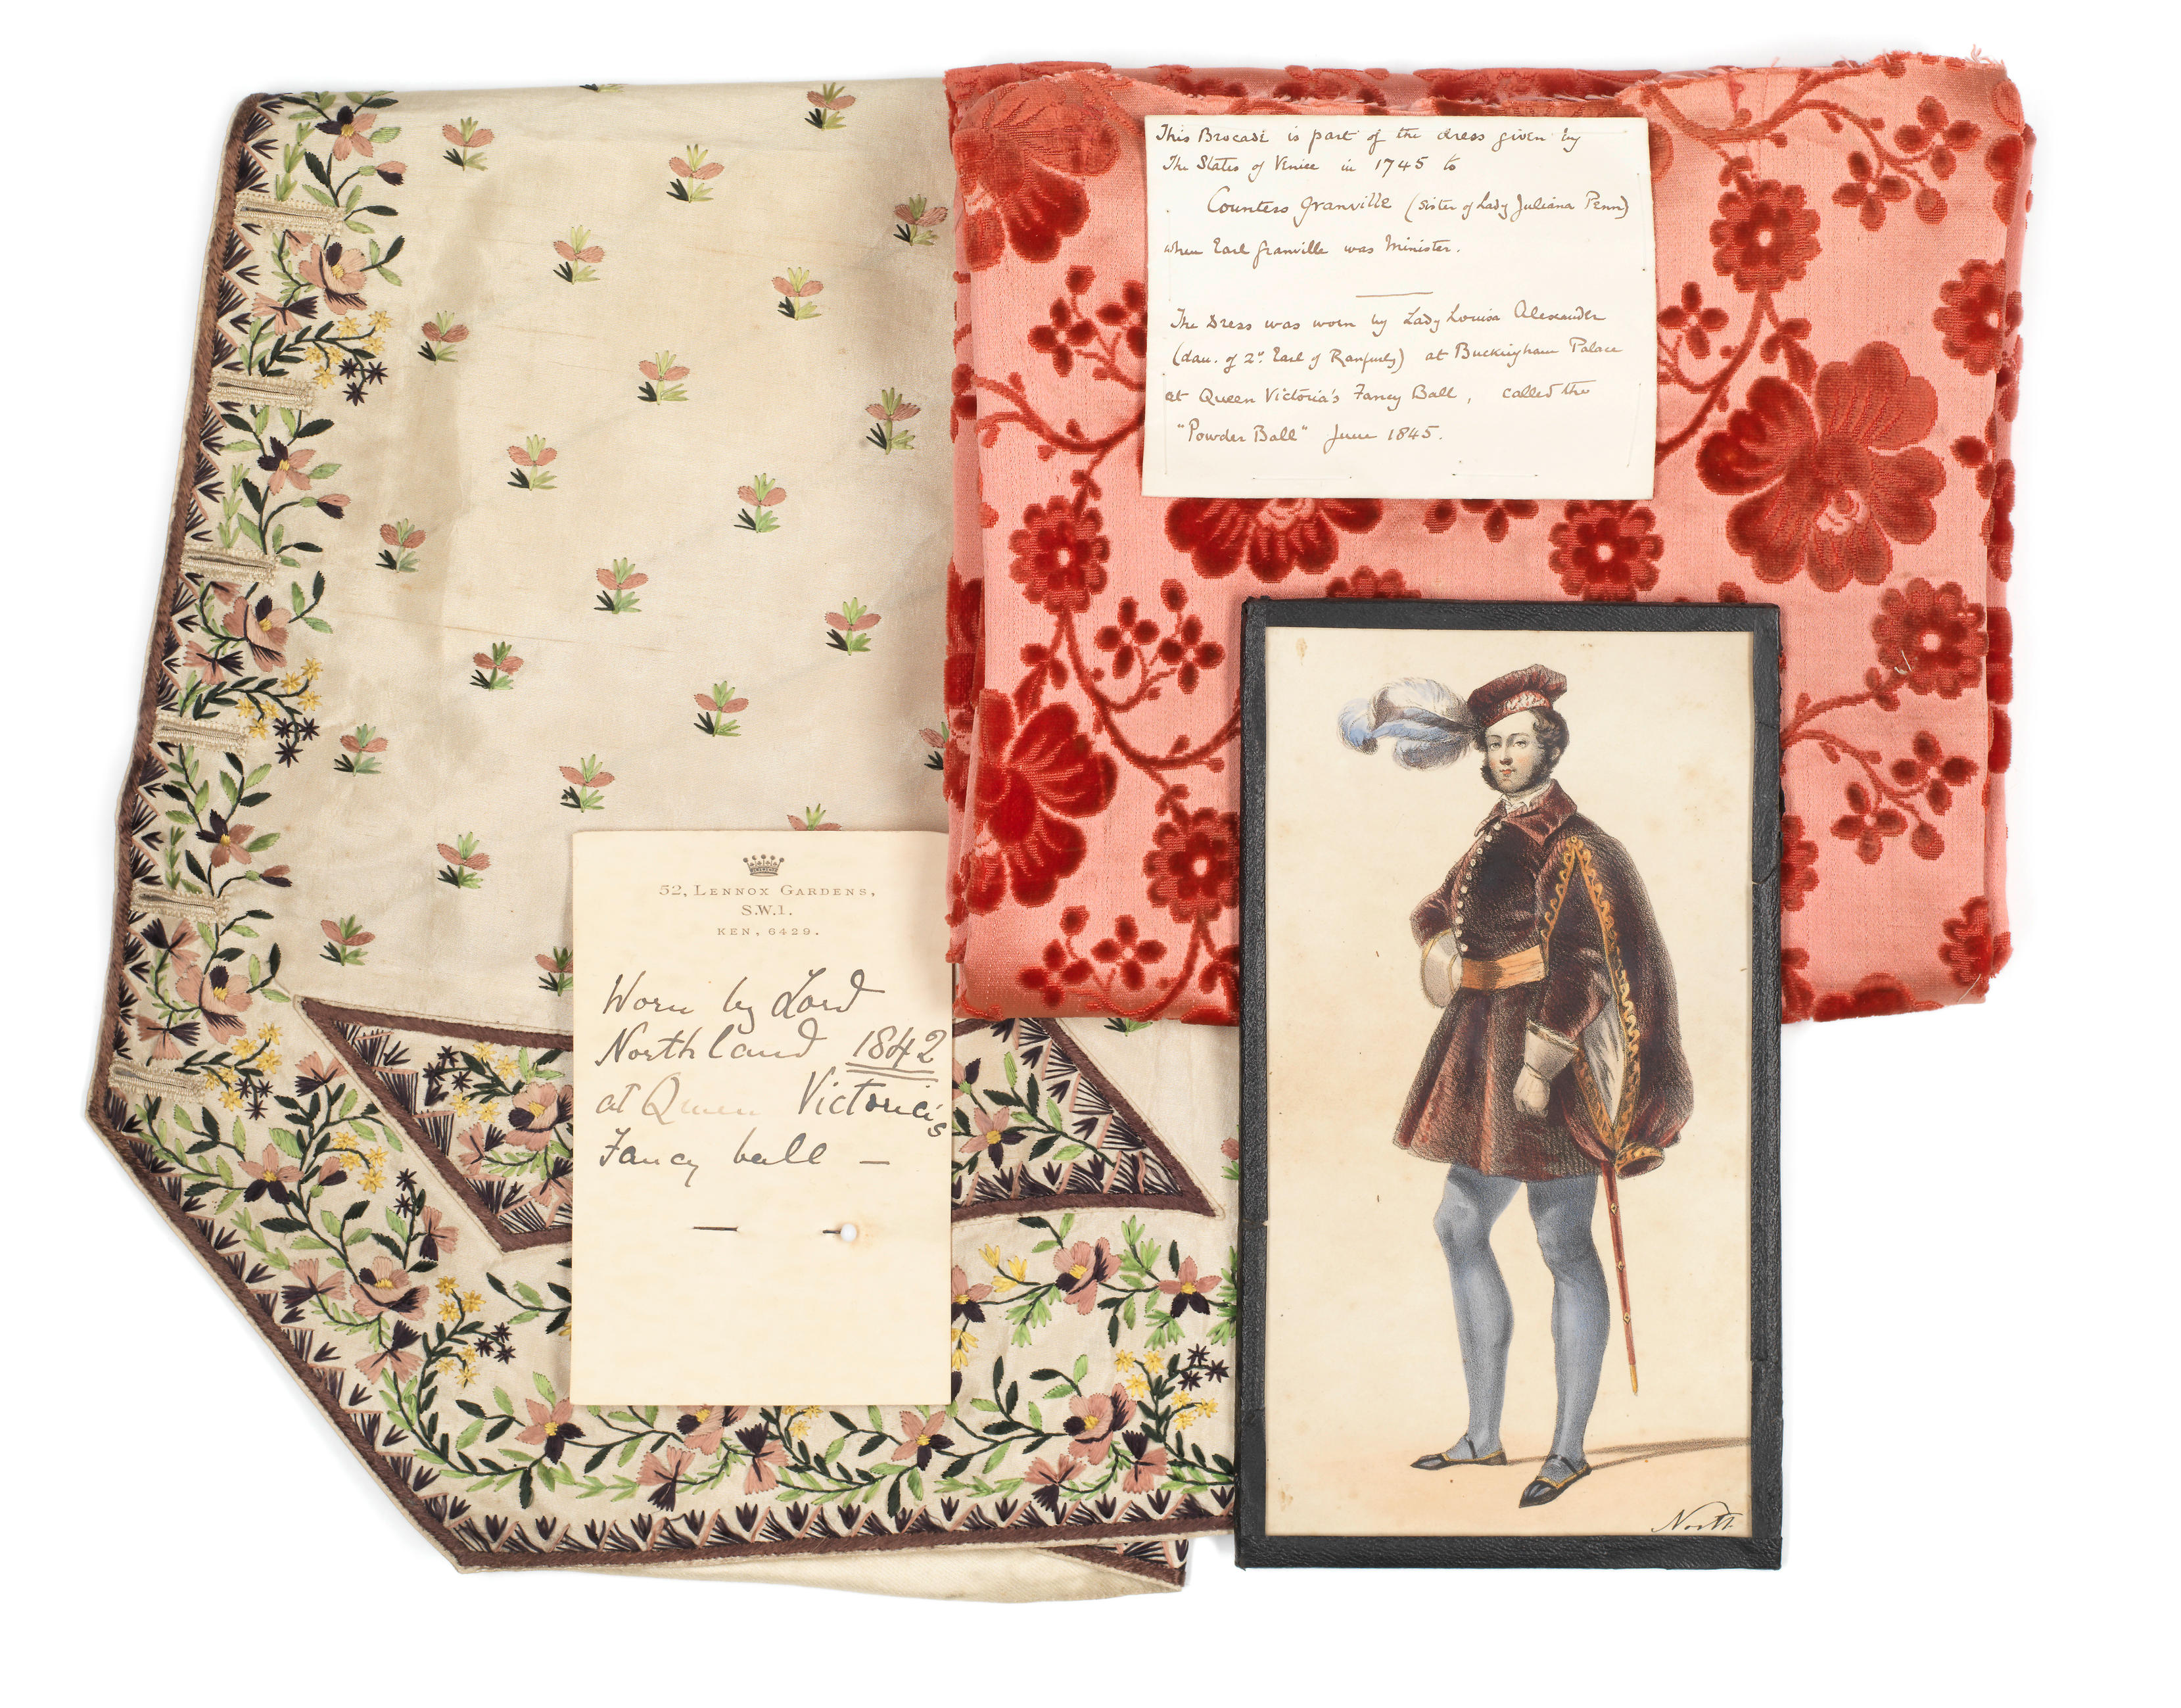 This Brocade is part of the dress given by
The States of Venice in 1745 to
Countess Granville (sister of Lady Juliana Penn)
when Earl Granville was Minister.
The Dress was worn by Lady Louisa Alexander
(dau. of 2d. Earl of Ranfurly) at Buckingham Palace
at Queen Victoria's Fancy Ball, called the
"Powder Ball" June 1845.
52, LENNOX GARDENS,
S.W.1.
KEN, 6429.
Worn by Lord
Northland 1842
at Queen Victoria's
Fancy ball —
North